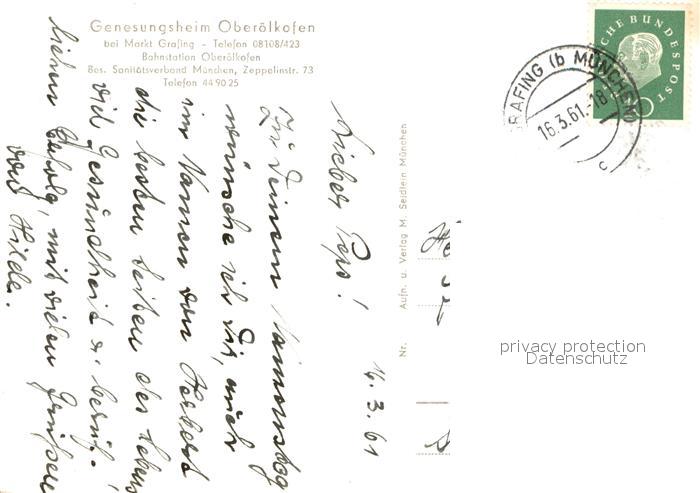 Genesungsheim Oberölkofen
bei Markt Grafing - Telefon 08108/423
Bahnstation Oberölkofen
Bes. Sanitätsverband München, Zeppelinstr. 73
Telefon 44 90 25
16.3.61
Lieber Pepo!
Zu Deinem Namenstag
wünsche ich Dir, auch
im Namen von Herbert
die besten Seiten des Lebens
viel Gesundheit u. berufl.
Erfolg, mit vielen Grüßen
von Hilde.
Aufn. u. Verlag M. Seidlein München
Nr.
CHE BUNDESPOST
GRAFING (b MÜNCHEN)
16.3.61.-18
c
privacy protection
Datenschutz